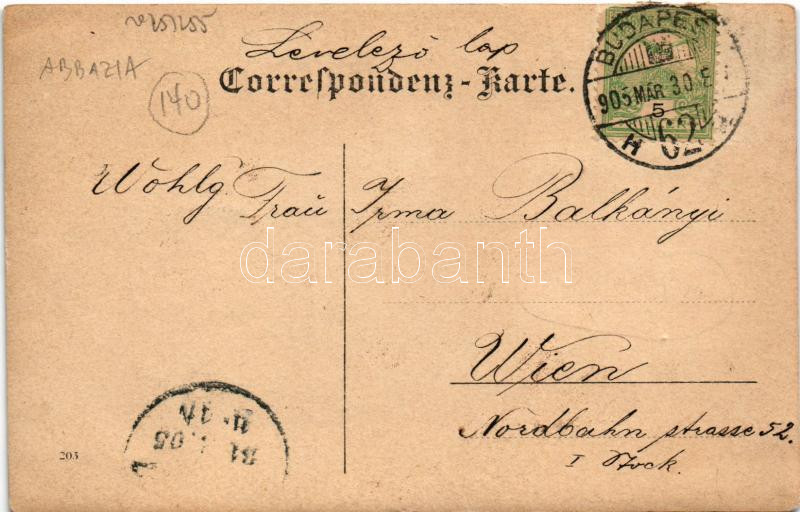 ABBAZIA
140
Levelező lap
Correspondenz-Karte.
BUDAPES
905 MÁR 30 E
5
H 62
Wohlg Frau Irma Balkányi
darabanth
Wien
Nordbahn strasse 52.
I Stock.
203
31 05